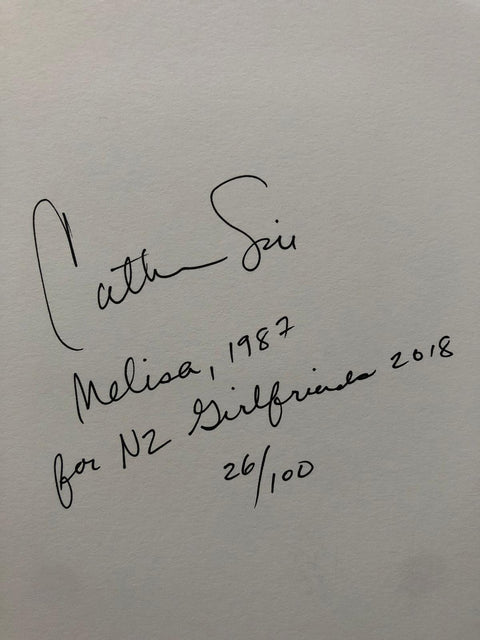 Melisa, 1987
for NZ Girlfriends 2018
26/100